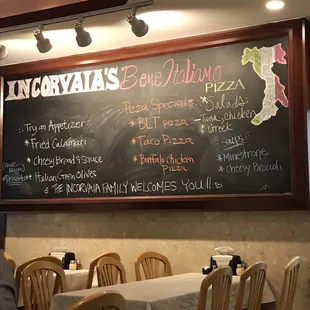 INCORVAIA'S Bene Italiano
PIZZA
Try an Appetizer
* Fried Calamari
* Cheesy Bread & Sauce
* Italian Green Olives
Pizza Specials
* BLT pizza
* Taco Pizza
* Buffalo chicken
Pizza
* Salads
- Tuna, chicken
& Greek
SOUPS
* Minestrone
* Cheesy Broccoli
* THE INCORVAIA FAMILY WELCOMES YOU!!